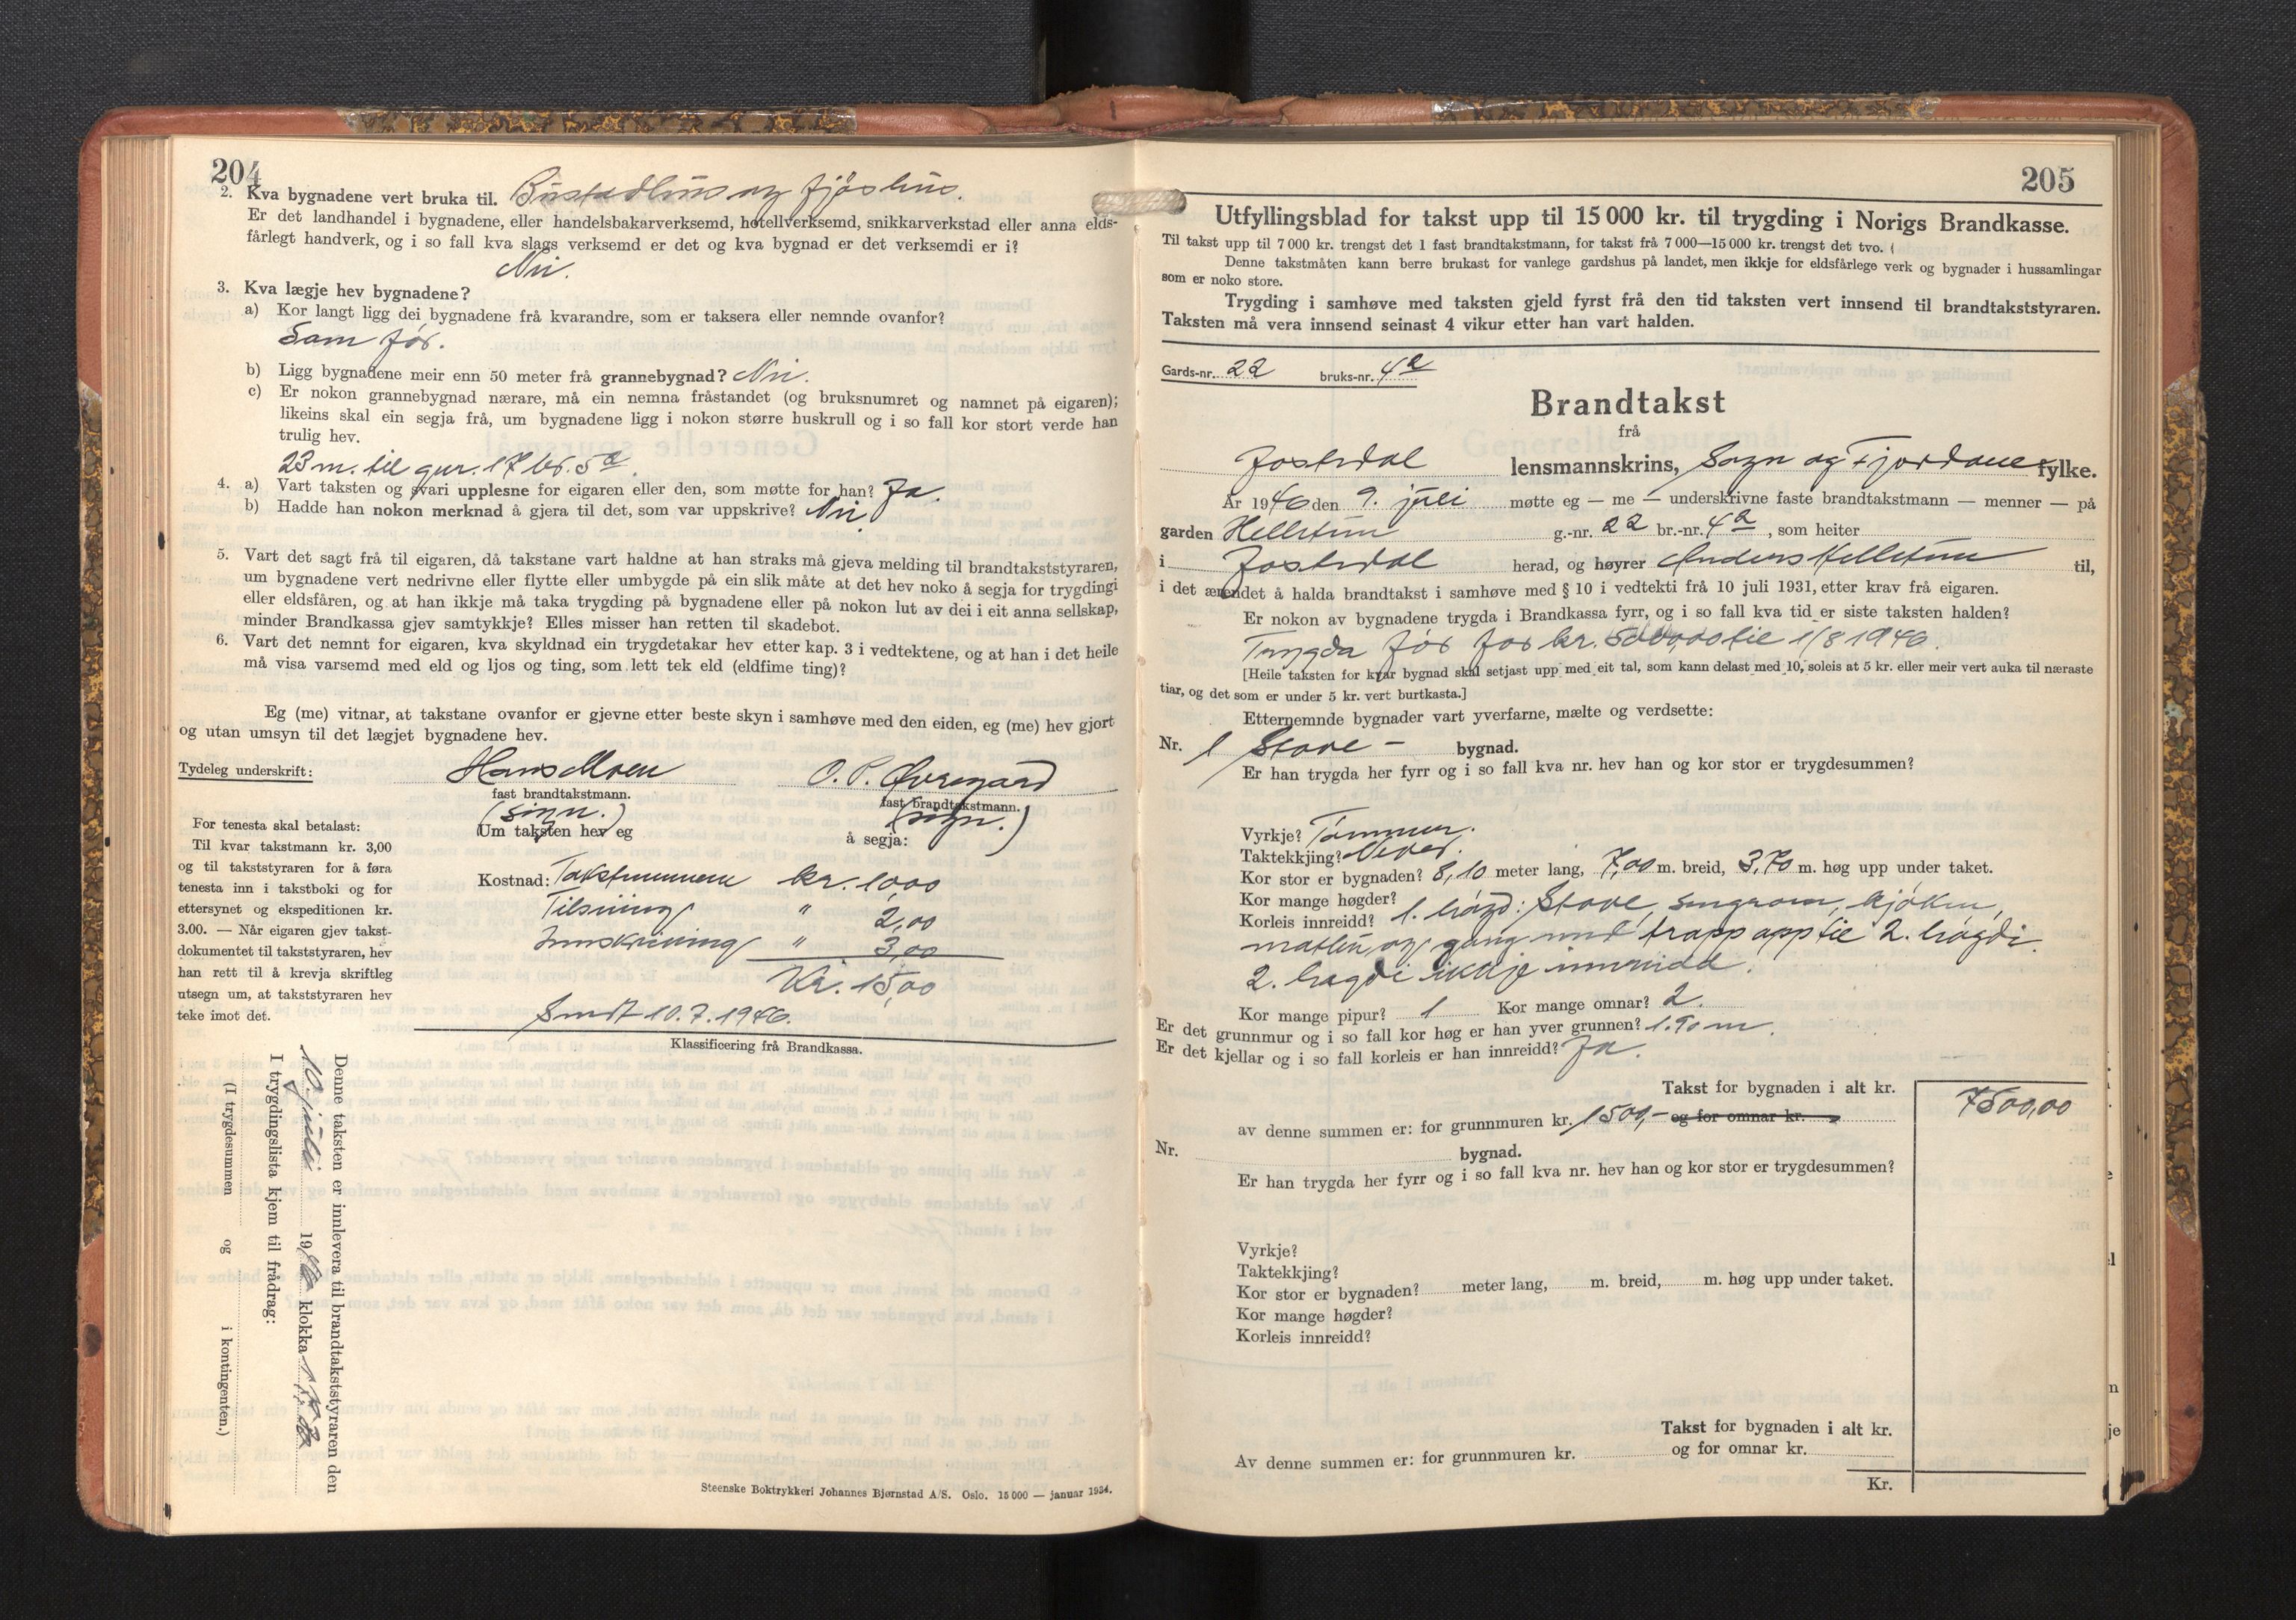 204
2. Kva bygnadene vert bruka til. Bustadhus og fjøshus.
Er det landhandel i bygnadene, eller handelsbakarverksemd, hotellverksemd, snikkarverkstad eller anna elds-
fårlegt handverk, og i so fall kva slags verksemd er det og kva bygnad er det verksemdi er i?
Nei.
3. Kva lægje hev bygnadene?
a) Kor langt ligg dei bygnadene frå kvarandre, som er taksera eller nemnde ovanfor?
Som før.
b) Ligg bygnadene meir enn 50 meter frå grannebygnad? Nei.
c) Er nokon grannebygnad nærare, må ein nemna fråstandet (og bruksnumret og namnet på eigaren);
likeins skal ein segja frå, um bygnadene ligg i nokon større huskrull og i so fall kor stort verde han
trulig hev.
23 m. til gnr. 17 br. 5a.
4. a) Vart taksten og svari upplesne for eigaren eller den, som møtte for han? Ja.
b) Hadde han nokon merknad å gjera til det, som var uppskrive? Nei
5. Vart det sagt frå til eigaren, då takstane vart haldne at han straks må gjeva melding til brandtakststyraren,
um bygnadene vert nedrivne eller flytte eller umbygde på ein slik måte at det hev noko å segja for trygdingi
eller eldsfåren, og at han ikkje må taka trygding på bygnadene eller på nokon lut av dei i eit anna sellskap,
minder Brandkassa gjev samtykkje? Elles misser han retten til skadebot.
6. Vart det nemnt for eigaren, kva skyldnad ein trygdetakar hev etter kap. 3 i vedtektene, og at han i det heile
må visa varsemd med eld og ljos og ting, som lett tek eld (eldfime ting)?
Eg (me) vitnar, at takstane ovanfor er gjevne etter beste skyn i samhøve med den eiden, eg (me) hev gjort
og utan umsyn til det lægjet bygnadene hev.
Tydeleg underskrift: Hans Moen O. P. Øvregard
fast brandtakstmann. fast brandtakstmann.
(sign.) (sign.)
Um taksten hev eg å segja:
For tenesta skal betalast:
Til kvar takstmann kr. 3,00
og til takststyraren for å føra
tenesta inn i takstboki og for
ettersynet og ekspeditionen kr.
3.00. — Når eigaren gjev takst-
dokumentet til takststyraren, hev
han rett til å krevja skriftleg
utsegn um, at takststyraren hev
teke imot det.
Kostnad: Takstmennene kr. 10,00
Tilsyning " 2,00
Innskriving " 3,00
Kr. 15,00
Sendt 10.7.1946.
Klassificering frå Brandkassa.
Denne taksten er innlevera til brandtakststyraren den
10. juli 1946 klokka
I trygdingslista kjem til frådrag:
(I trygdesummen og i kontingenten.)
Steenske Boktrykkeri Johannes Bjørnstad A/S. Oslo. 15 000 — januar 1934.
205
Utfyllingsblad for takst upp til 15 000 kr. til trygding i Norigs Brandkasse.
Til takst upp til 7 000 kr. trengst det 1 fast brandtakstmann, for takst frå 7 000—15 000 kr. trengst det tvo.
Denne takstmåten kann berre brukast for vanlege gardshus på landet, men ikkje for eldsfårlege verk og bygnader i hussamlingar
som er noko store.
Trygding i samhøve med taksten gjeld fyrst frå den tid taksten vert innsend til brandtakststyraren.
Taksten må vera innsend seinast 4 vikur etter han vart halden.
Gards-nr. 22 bruks-nr. 4a
Brandtakst
frå
Jostedal lensmannskrins, Sogn og Fjordane fylke.
År 1946 den 9. juli møtte eg — me — underskrivne faste brandtakstmann — menner — på
garden Hellstun g.-nr. 22 br.-nr. 4a, som heiter
i Jostedal herad, og høyrer Anders Hellstun til,
i det ærendet å halda brandtakst i samhøve med § 10 i vedtekti frå 10 juli 1931, etter krav frå eigaren.
Er nokon av bygnadene trygda i Brandkassa fyrr, og i so fall kva tid er siste taksten halden?
Trygda før for kr. 5000,00 til 1/8 1946.
[Heile taksten for kvar bygnad skal setjast upp med eit tal, som kann delast med 10, soleis at 5 kr. eller meir vert auka til næraste
tiar, og det som er under 5 kr. vert burtkasta.]
Etternemnde bygnader vart yverfarne, mælte og verdsette:
Nr. 1 Stove - bygnad.
Er han trygda her fyrr og i so fall kva nr. hev han og kor stor er trygdesummen?
Vyrkje? Tømmer.
Taktekkjing? Never.
Kor stor er bygnaden? 8,10 meter lang, 7,00 m. breid, 3,70 m. høg upp under taket.
Kor mange høgder?
Korleis innreidd? 1. høgd: Stove, sengrom, kjøken,
matbu, og gang med trapp opp til 2. høgdi.
2. høgdi ikkje innreidd.
Kor mange pipur? 1 Kor mange omnar? 2.
Er det grunnmur og i so fall kor høg er han yver grunnen? 1.90 m.
Er det kjellar og i so fall korleis er han innreidd? Ja.
Takst for bygnaden i alt kr. 7500,00
av denne summen er: for grunnmuren kr. 1500,- og for omnar kr.
Nr. bygnad.
Er han trygda her fyrr og i so fall kva nr. hev han og kor stor er trygdesummen?
Vyrkje?
Taktekkjing?
Kor stor er bygnaden? meter lang, m. breid, m. høg upp under taket.
Kor mange høgder?
Korleis innreidd?
Takst for bygnaden i alt kr.
Av denne summen er: for grunnmuren kr. og for omnar kr.
Kr.